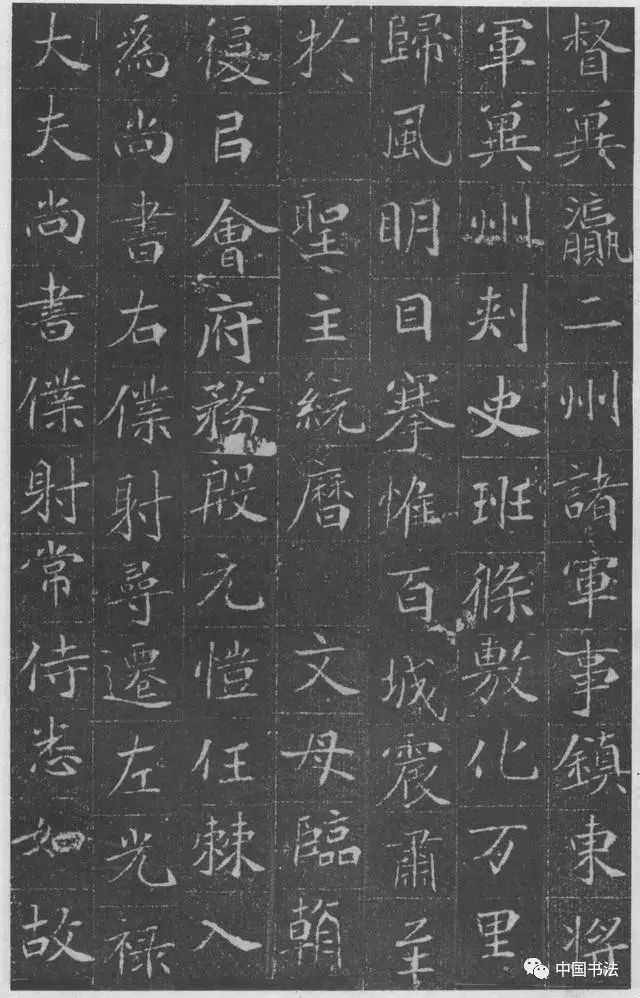 督冀瀛二州諸軍事鎮東將
軍冀州刺史班條敷化万里
歸風明目搴惟百城震肅至
於 聖主統曆 文母臨朝
復召會府務殷元愷任棘入
為尚書右僕射尋遷左光祿
大夫尚書僕射常侍悉如故
中国书法